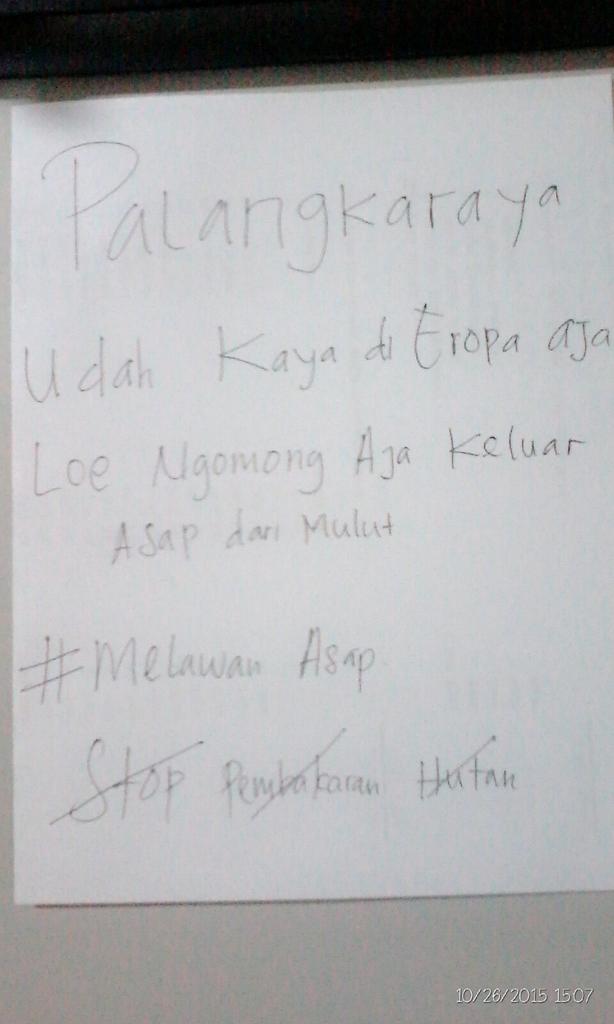 Palangkaraya
Udah Kaya di Eropa aja
Loe Ngomong Aja Keluar
Asap dari Mulut
#Melawan Asap
Stop Pembakaran Hutan
10/26/2015 15:07